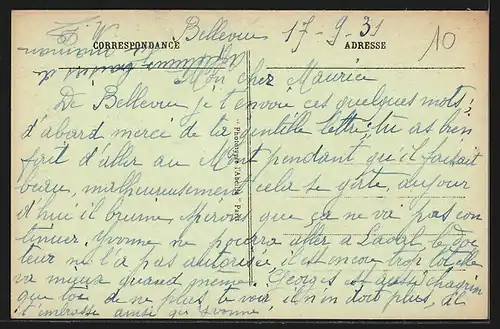 Bellevue 17-9-31
10
CORRESPONDANCE
ADRESSE
maman
Mon cher Maurice
De Bellevue je t'envoie ces quelques mots;
d'abord merci de ta gentille lettre: tu as bien
fait d'aller au Mont pendant qu'il faisait
beau, malheureusement cela se gâte, aujour
d'hui il bruine, espérons que ça ne va pas con
tinuer. Yvonne ne pourra aller à le Doc
teur ne l'a pas autorisée, il est encore trop tôt elle
va mieux quand même. Georges est aussi chagrin
que toi de ne plus te voir, il n'en dort plus, il
t'embrasse ainsi qu'Yvonne.
Phototypie "Abeille" Paris